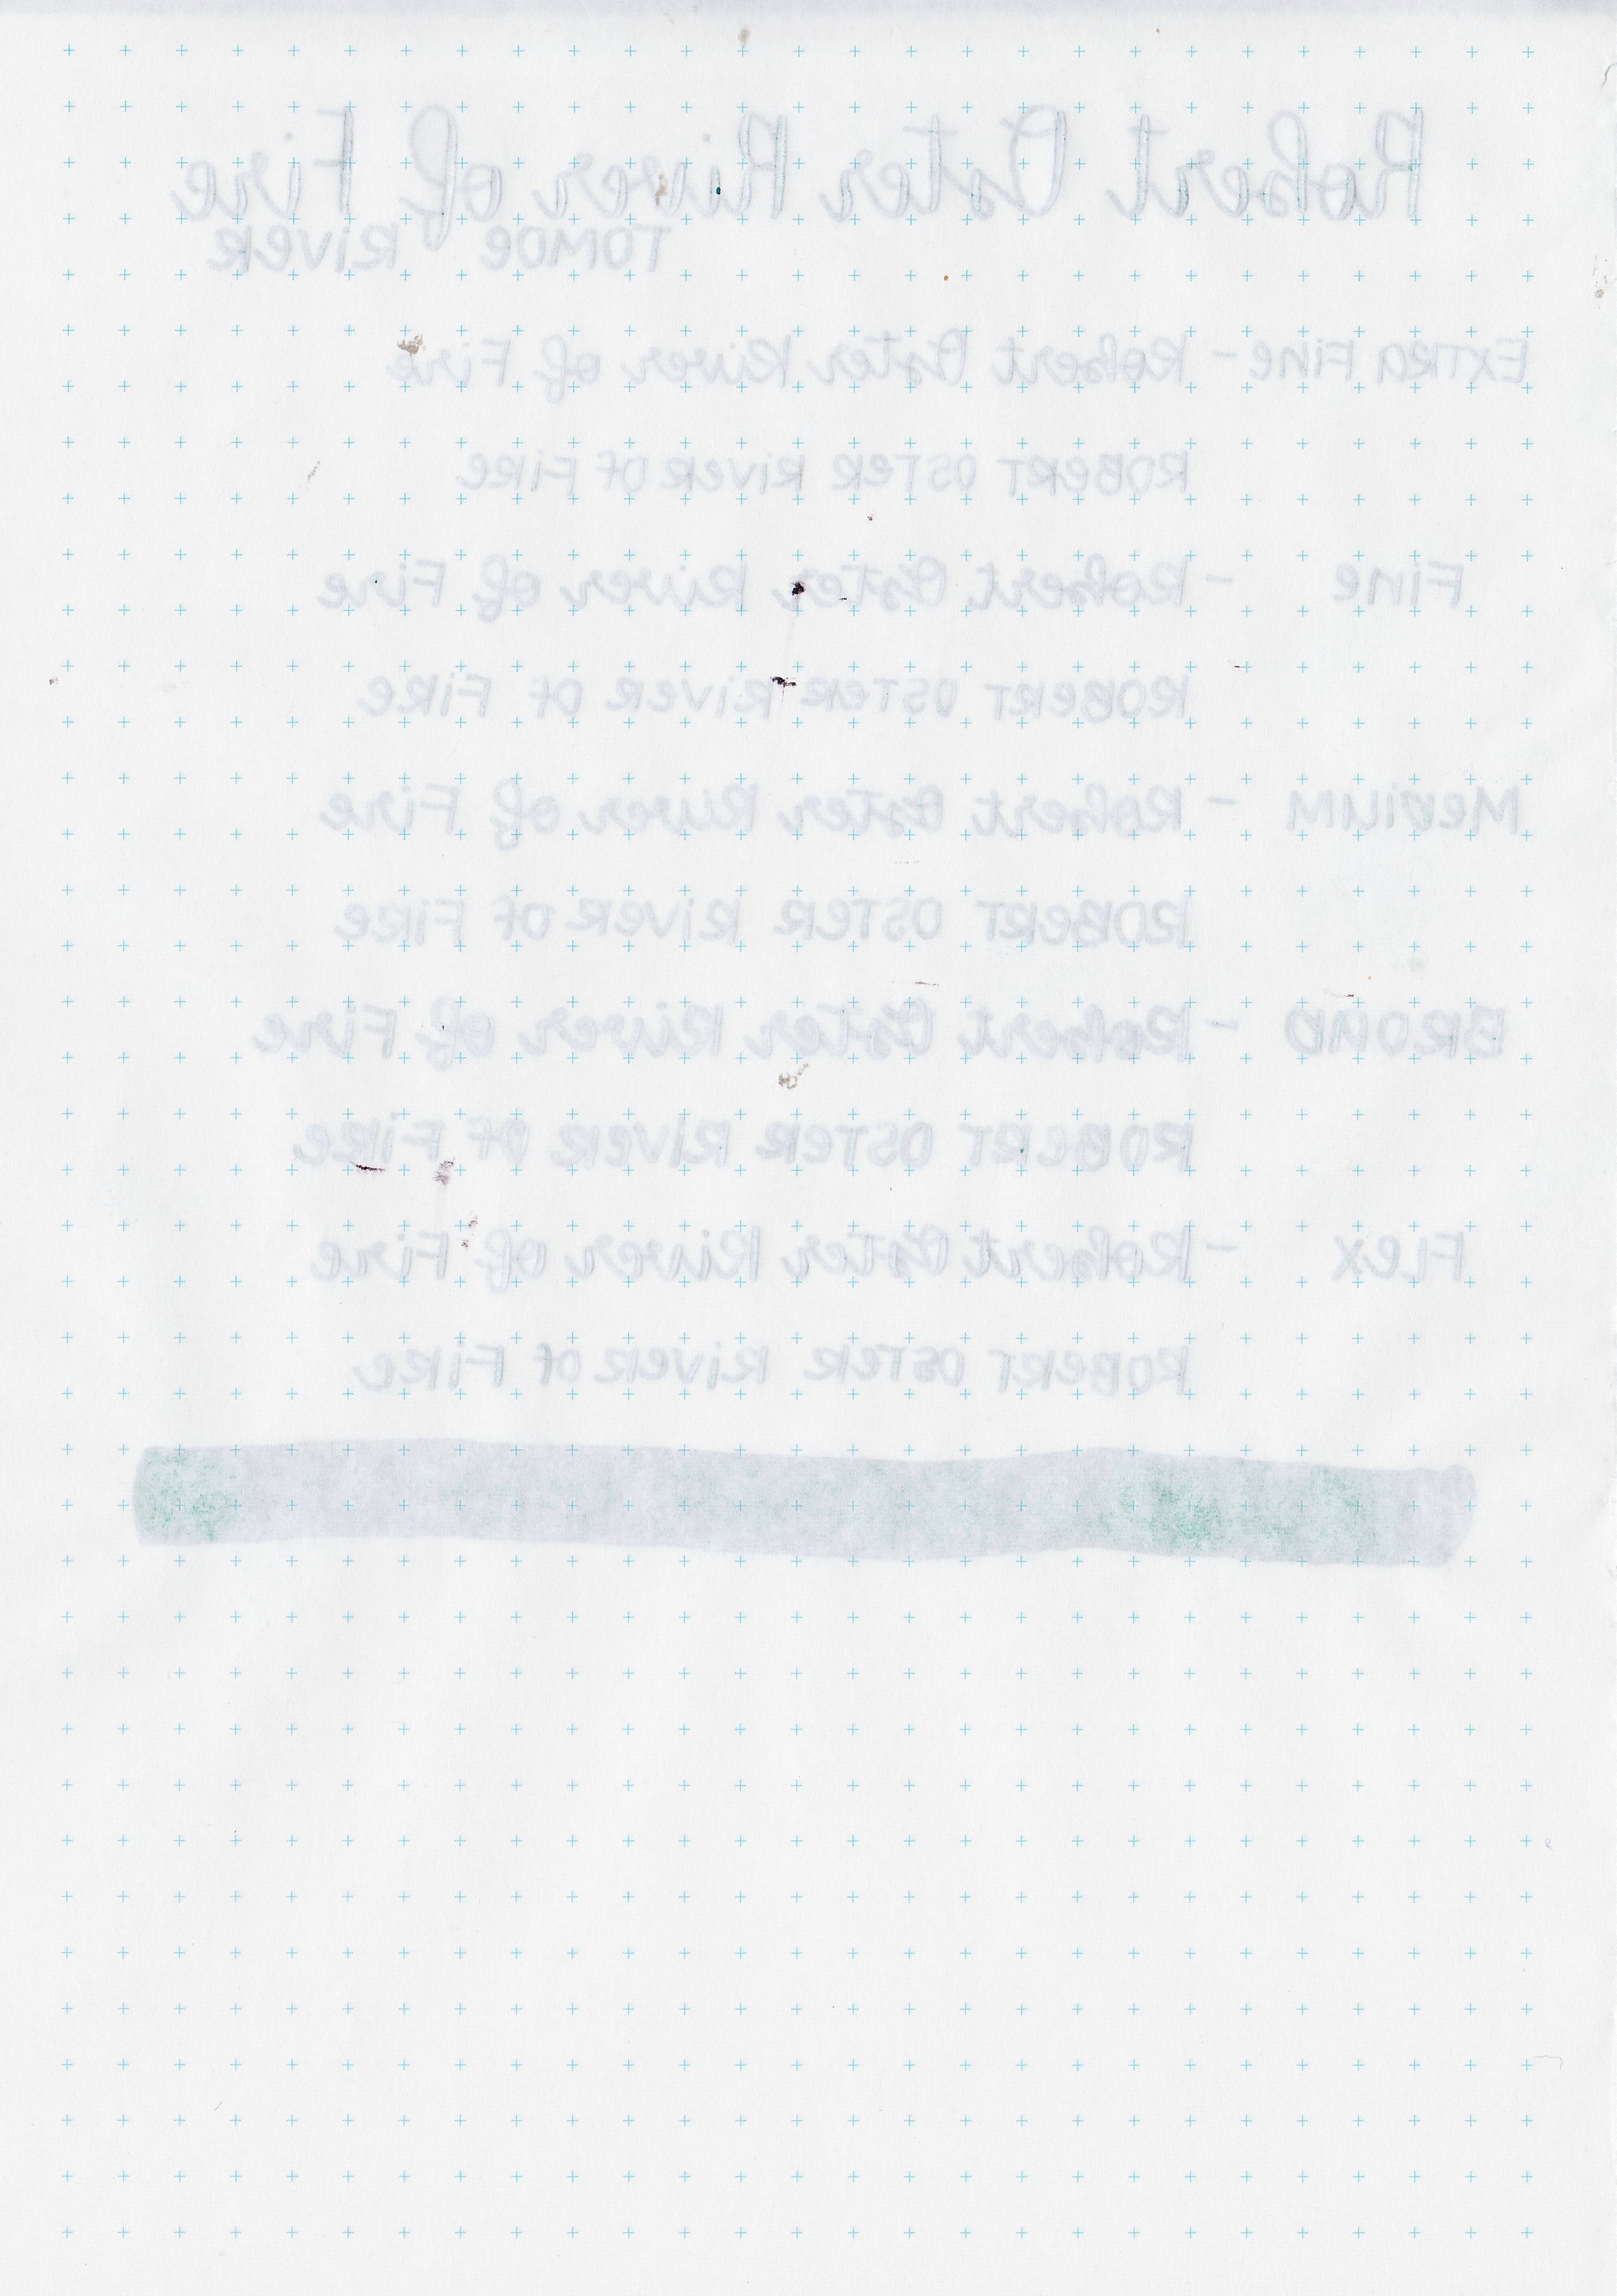 Robert Oster River of Fire
TOMOE RIVER
EXTRA FINE - Robert Oster River of Fire
ROBERT OSTER RIVER OF FIRE
FINE - Robert Oster River of Fire
ROBERT OSTER RIVER OF FIRE
MEDIUM - Robert Oster River of Fire
ROBERT OSTER RIVER OF FIRE
BROAD - Robert Oster River of Fire
ROBERT OSTER RIVER OF FIRE
FLEX - Robert Oster River of Fire
ROBERT OSTER RIVER OF FIRE